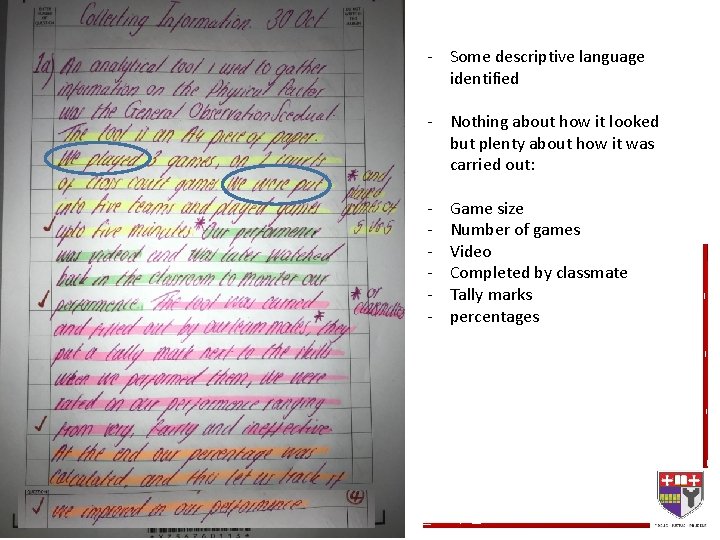 Collecting Information 30 Oct
1a) An analytical tool I used to gather
information on the Physical Factor
was the General Observation Scedual.
The tool is an A4 piece of paper.
We played 3 games, on 1 courts
of class court games we were put
* and
played
games of
5 vs 5
into five teams and played games
upto five minutes * Our performence
was videod and was later watched
back in the classroom to moniter our
performence. The tool was carried
* or
classmates
and filled out by our teammates, * they
put a tally mark next to the skills
when we performed them, we were
rated on our performence ranging
from very, fairly and ineffective.
At the end our percentage was
calculated, and this let us track if
we improved in our performence.
4
QUESTION
- Some descriptive language
identified
- Nothing about how it looked
but plenty about how it was
carried out:
- Game size
- Number of games
- Video
- Completed by classmate
- Tally marks
- percentages